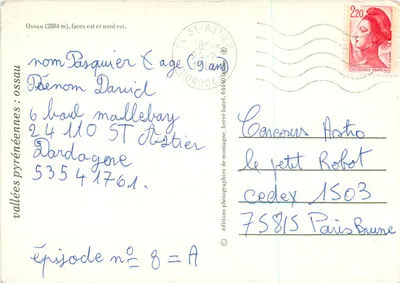 Ossau (2884 m), faces est et nord est.
nom Pasquier X age (9 ans)
Prénom David
6 bould mallebay
24 110 ST Astier
Dardogne
53541761.
épisode n° 8 = A
vallées pyrénéennes : ossau
© éditions photographies de montagne
24 ST-ASTIER
2,20
REPUBLIQUE FRANÇAISE
Concours Astro
le petit Robot
cedex 1503
75815 Paris Brune